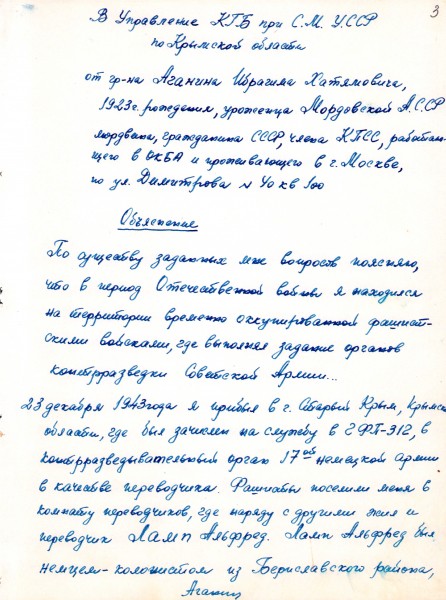 3
В Управление КГБ при С.М. УССР
по Крымской области
от гр-на Аганина Ибрагима Хатямовича,
1923 г. рождения, уроженца Мордовской АССР
мордвина, гражданина СССР, члена КПСС, работаю-
щего в ОКБА и проживающего в г. Москве,
по ул. Димитрова № 40 кв 100
Объяснение
По существу заданных мне вопросов поясняю,
что в период Отечественной войны я находился
на территории временно оккупированной фашист-
скими войсками, где выполнял задание органов
контрразведки Советской Армии...
23 декабря 1943 года я прибыл в г. Старый Крым, Крымской
области, где был зачислен на службу в ГФП-312, в
контрразведывательный орган 17ой немецкой армии
в качестве переводчика. Фашисты поселили меня в
комнату переводчиков, где наряду с другими жил и
переводчик Ламп Альфред. Ламп Альфред был
немцем-колонистом из Бериславского района,
Аганин